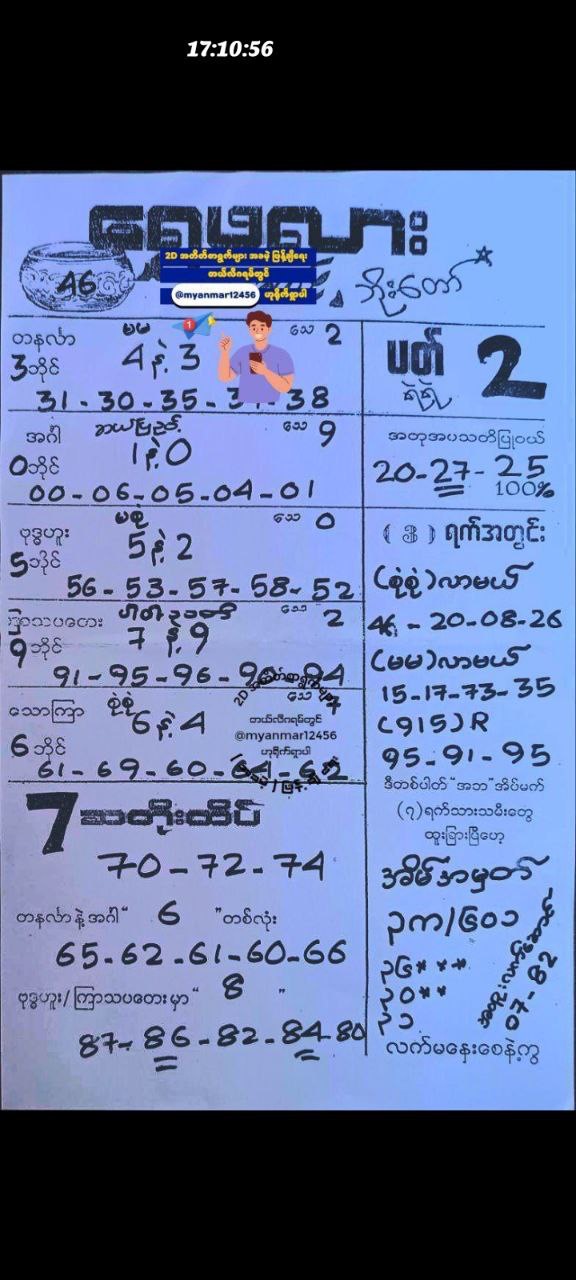 17:10:56
ရွှေဖလား
46
2D အတိတ်တရွက်များ အခမဲ့ ဖြန့်ချီရေး
တယ်လီဂရမ်တွင်
@myanmar12456 ဟုရိုက်ရှာပါ
ဘိုးတော်
တနင်္လာ မမ သေ 2
3 ဘိုင် 4 နဲ့ 3
31 - 30 - 35 - 38
အင်္ဂါ ဆယ်ပြည့် သေ 9
0 ဘိုင် 1 နဲ့ 0
00 - 06 - 05 - 04 - 01
ဗုဒ္ဓဟူး မစုံ သေ 0
5 ဘိုင် 5 နဲ့ 2
56 - 53 - 57 - 58 - 52
ကြာသပတေး ပါတ် သေ 2
9 ဘိုင် 7 နဲ့ 9
91 - 95 - 96 - 94
သောကြာ စုံစုံ သေ
6 ဘိုင် 6 နဲ့ 4
61 - 69 - 60 - 64 - 62
တယ်လီဂရမ်တွင်
@myanmar12456
ဟုရိုက်ရှာပါ
7 ဆတိုးထိပ်
70 - 72 - 74
တနင်္လာ နဲ့ အင်္ဂါ " 6 " တစ်လုံး
65 - 62 - 61 - 60 - 66
ဗုဒ္ဓဟူး / ကြာသပတေး မှာ " 8 "
87 - 86 - 82 - 84 - 80
ပတ် 2
ရဲရဲ
အတုအပသတိပြုဝယ်
20 - 27 - 25
100%
( ၃ ) ရက်အတွင်း
(စုံစုံ) လာမယ်
46 - 20 - 08 - 26
(မမ) လာမယ်
15 - 17 - 73 - 35
(915) R
95 - 91 - 95
ဒီတစ်ပါတ် "အဘ" အိပ်မက်
(၇) ရက်သားသမီးတွေ
ထူးခြားပြီဟေ့
အိမ်အမှတ်
၃က/၆၀၁
၃၆***
၃၀**
၃၁
07 - 82
လက်မနှေးစေနဲ့ကွ